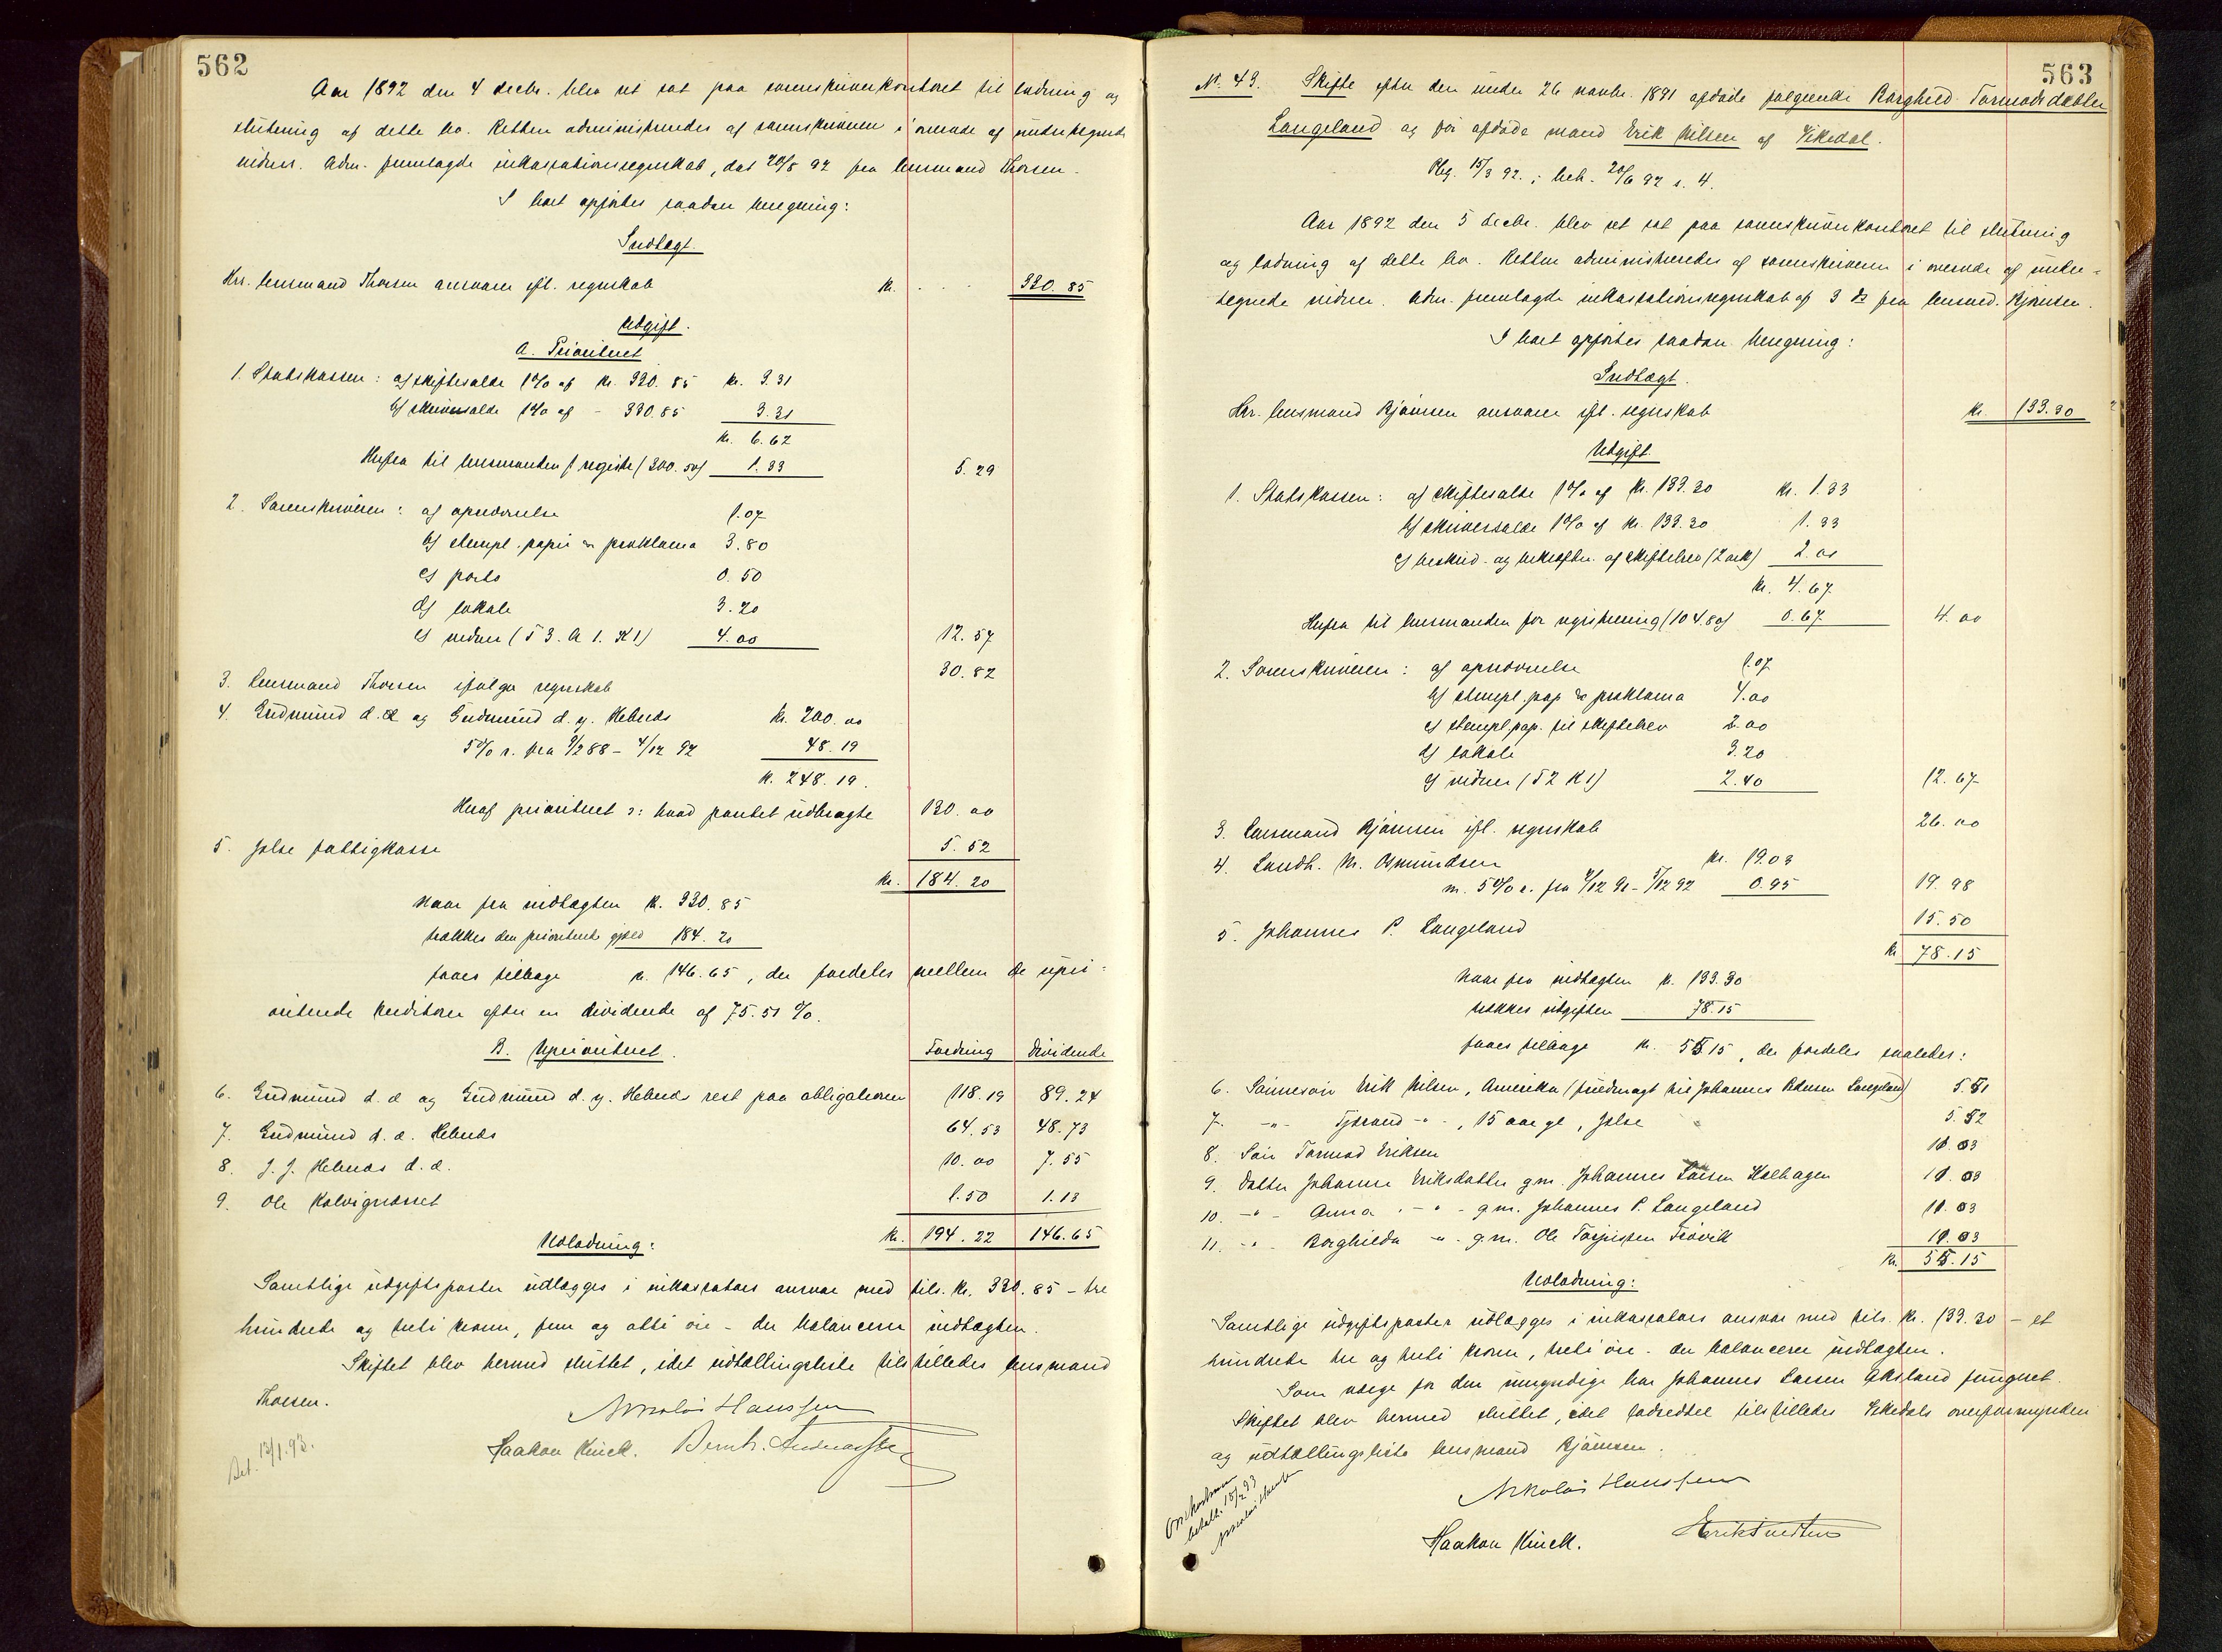 562
Aar 1892 den 4 decbr. blev ret sat paa sorenskriverkontoret til lodning og
slutning af dette bo. Retten administreredes af sorenskriveren i overvær af undertegnede
vidner. Adm. fremlagde inkassationsregnskab, dat 20/8 92 fra lensmand Thorsen.
I boet opførtes saadan beregning:
Indtægt.
Hr. lensmand Thorsen ansvarer ifl. regnskab kr. . . . 330.85
Udgift.
A. Prioriteret
1. Statskassen: a) skiftesalde 1% af kr. 330.85 kr. 3.31
b) skriversalde 1% af - 330.85 3.31
kr. 6.62
Herfra til lensmanden f. registr. (200.50) 1.33 5.29
2. Sorenskriveren: a) opnævnelse 1.07
b) stempl. papir & proklama 3.80
c) porto 0.50
d) lokale 3.20
e) vidner (T 3. A 1. K 1) 4.00 12.57
3. Lensmand Thorsen ifølge regnskab 30.82
4. Gudmund d. æ og Gudmund d. y. Hebnes kr. 200.00
5% r. fra 9/2 88 - 4/12 92 48.19
kr. 248.19.
Heraf prioriteret ɔ: hvad pantet udbragte 130.00
5. Jelse fattigkasse 5.52
kr. 184.20
Naar fra indtægten kr. 330.85
trækkes den prioriterte gjæld 184.20
faaes tilbage kr. 146.65, der fordeles mellem de upri-
oriterede kreditorer efter en dividende af 75.51 %.
B. Uprioriteret. Fordring Dividende
6. Gudmund d. æ og Gudmund d. y. Hebnes rest paa obligationen 118.19 89.24
7. Gudmund d. æ. Hebnes 64.53 48.73
8. J. J. Hebnes d. æ. 10.00 7.55
9. Ole Kalvignæsset 1.50 1.13
kr. 194.22 146.65
Udlodning:
Samtlige udgiftsposter udlægges i inkassators ansvar med tils. kr. 330.85 - tre
hundrede og treti kroner, fem og otti øre - der balancerer indtægten.
Skiftet blev hermed sluttet, idet udtællingsliste tilstilledes lensmand
Thorsen.
Nikolai Hanssen
Haakon Kinck. Bernh.
Bet. 13/1.93.
563
Nr. 43. Skifte efter den under 26 novbr. 1891 afdøde følgeenke Borghild Tormodsdatter
Langeland og før afdøde mand Erik Nilsen af Vikedal.
Reg. 15/3 92.; beh. 20/6 92 s. 4.
Aar 1892 den 5 decbr. blev ret sat paa sorenskriverkontoret til slutning
og lodning af dette bo. Retten administreredes af sorenskriveren i overvær af under-
tegnede vidner. Adm. fremlagde inkassationsregnskab af 3 ds fra lensmd. Bjønsen.
I boet opførtes saadan beregning:
Indtægt.
Hr. lensmand Bjønsen ansvarer ifl. regnskab kr. 133.30
Udgift.
1. Statskassen: a) skiftesalde 1% af kr. 133.30 kr. 1.33
b) skriversalde 1% af kr. 133.30 1.33
c) beskriv. og bekræften. af skiftebrev (2 ark) 2.00
kr. 4.67
Herfra til lensmanden for registrering (104.80) 0.67 4.00
2. Sorenskriveren: a) opnævnelse 1.07
b) stempl. pap & proklama 4.00
c) stempl. pap. til skiftebrev 2.00
d) lokale 3.20
e) vidner (T 2 K 1) 2.40 12.67
3. Lensmand Bjønsen ifl. regnskab 26.00
4. Landh. M. Osmundsen kr. 19.03
m. 5% r. fra 4/12 91 - 5/12 92 0.95 19.98
5. Johannes P. Langeland 15.50
kr 78.15
Naar fra indtægten kr. 133.30
trækkes udgiften 78.15
faaes tilbage kr. 55.15, der fordeles saaledes:
6. Sønnesøn Erik Nilsen, Amerika (fuldmagt til Johannes Pedersen Langeland) 5.51
7. -"- Tjøstaul -"-, 15 aar gl, Jelse 5.52
8. Søn Tormod Eriksen 11.03
9. Datter Johanne Eriksdatter g.m. Johannes Larsen Kolhagen 11.03
10. -"- Anna -"- g.m. Johannes P. Langeland 11.03
11. -"- Borghilda -"- g.m. Ole Torjussen 11.03
kr. 55.15
Udlodning:
Samtlige udgiftsposter udlægges i inkassators ansvar med tils. kr. 133.30 - et
hundrede tre og treti kroner, treti øre - der balancerer indtægten.
Som værge for den umyndige har Johannes Larsen Aksland fungeret.
Skiftet blev hermed sluttet, idet lodseddel tilstilledes Vikedals overformynderi
og udtællingsliste lensmand Bjønsen.
Nikolai Hanssen
Haakon Kinck.
Omkostninger
betalt. 15/2 93
Nikolai Hanssen